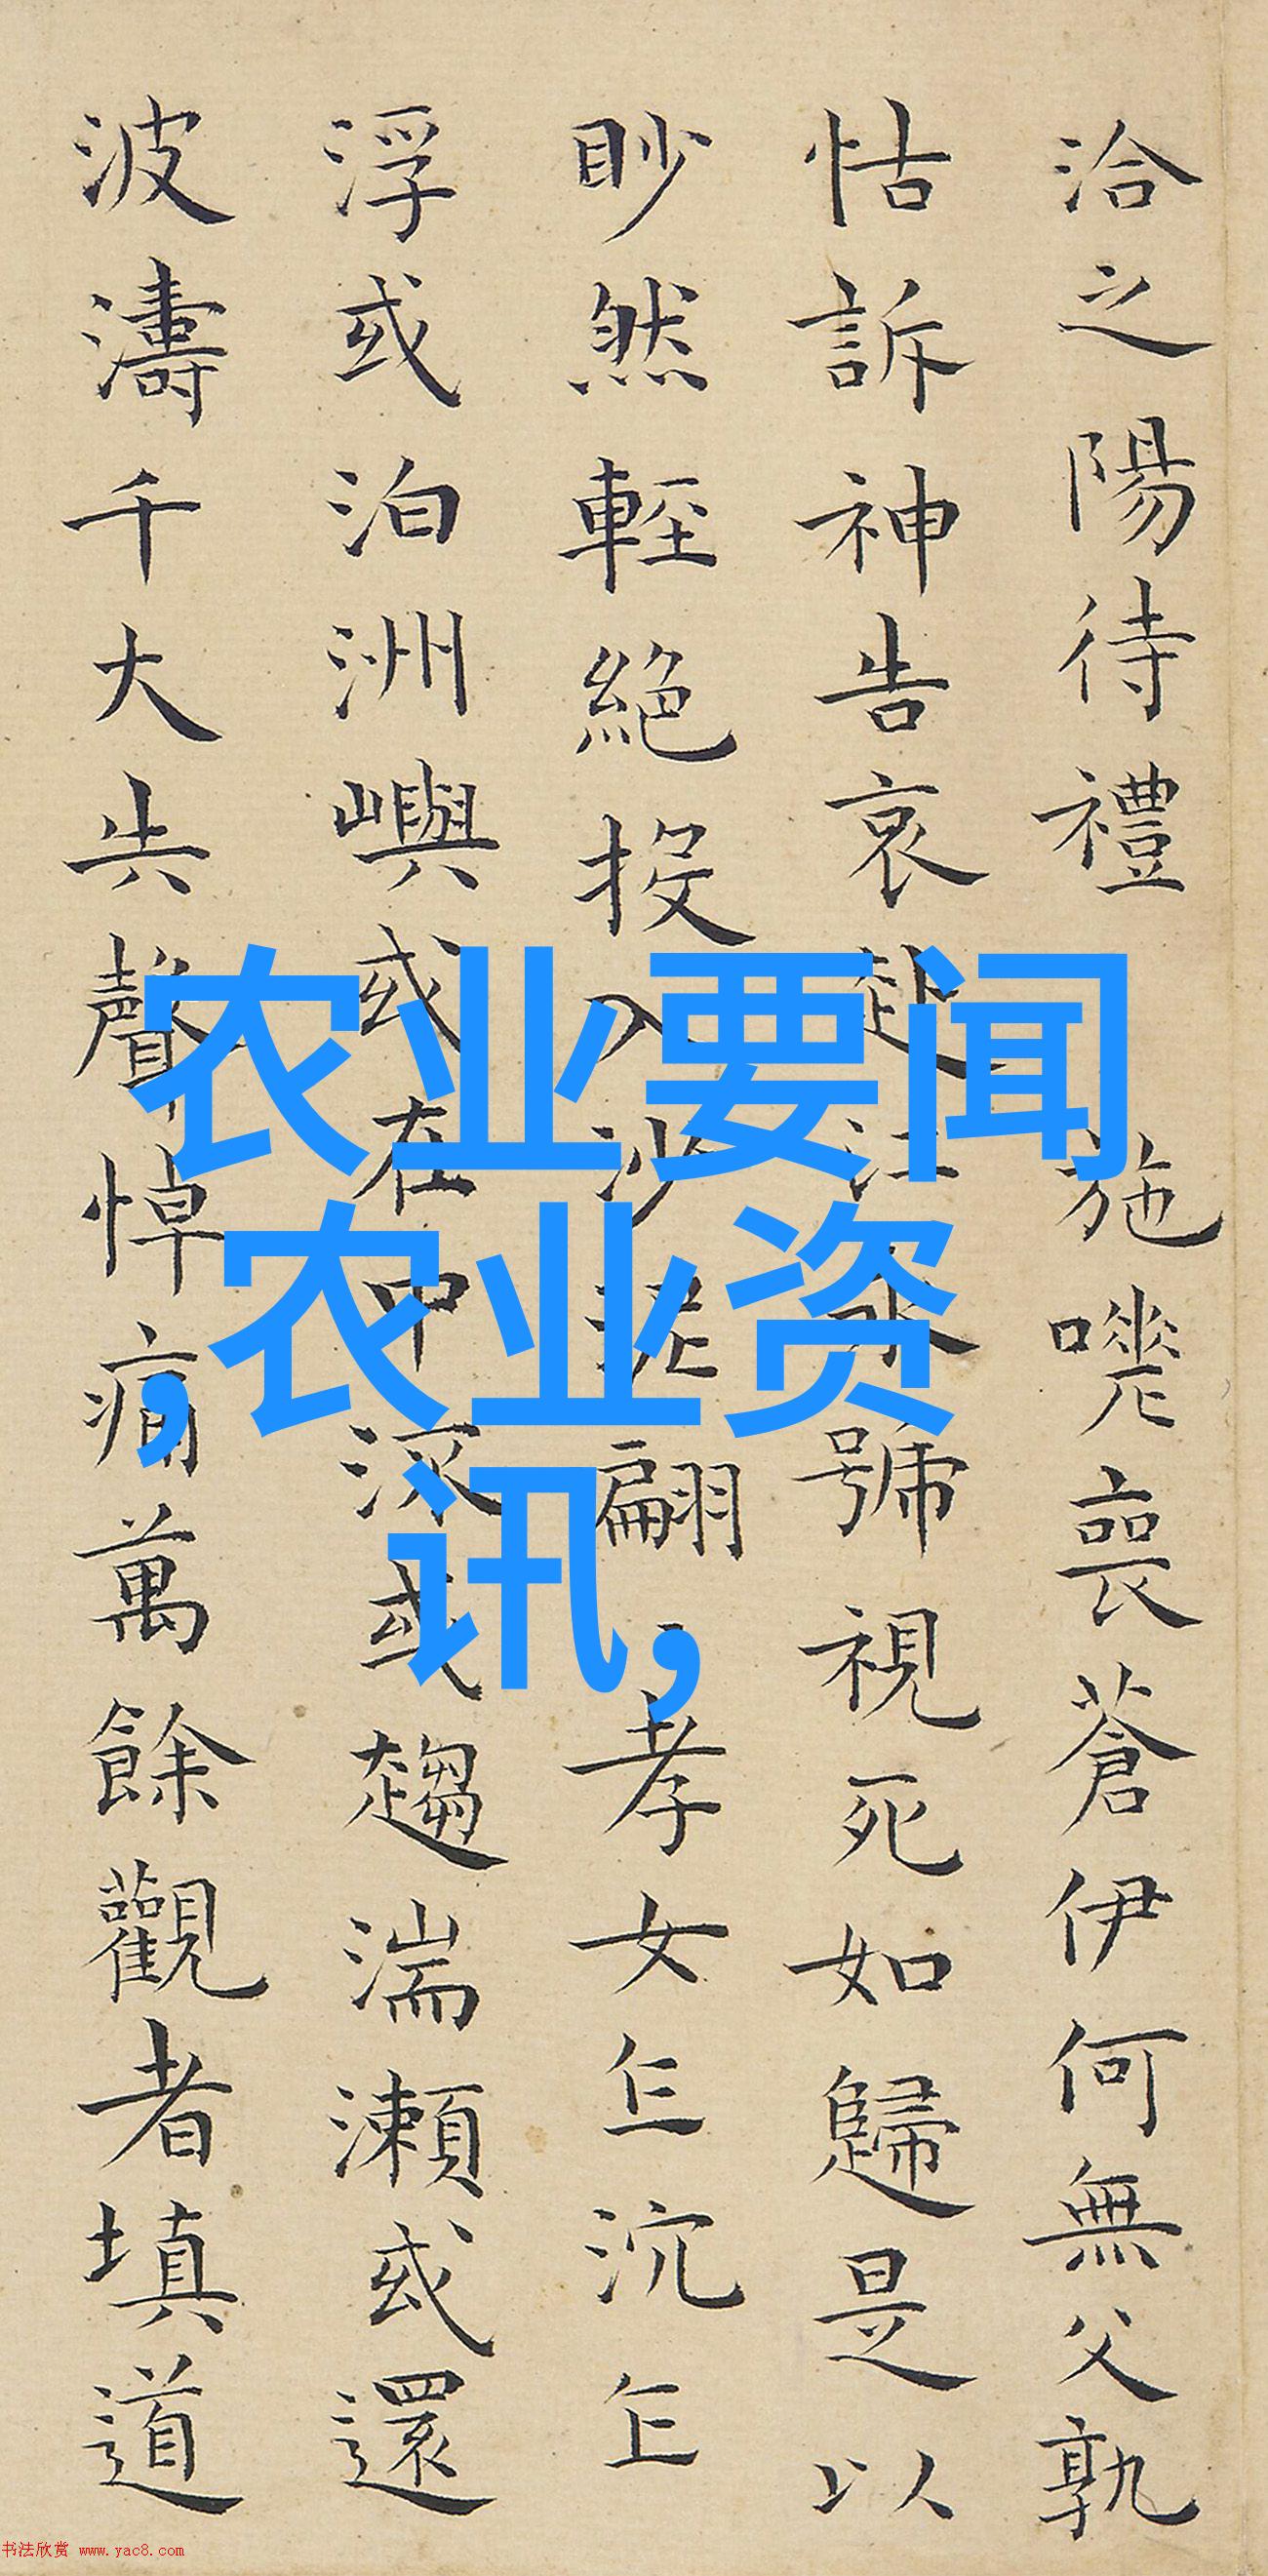 洽之陽待禮施嗟喪蒼伊何無父孰
怙訴神告哀赴江永號視死如歸是以
眇然輕絕投入沙泥翩孝女乍沉乍
浮或泊洲嶼或在中流或趨湍瀨或還
波濤千大失聲悼痛萬餘觀者填道
农业要闻
,农业资
讯,
书法欣赏 www.yac8.com